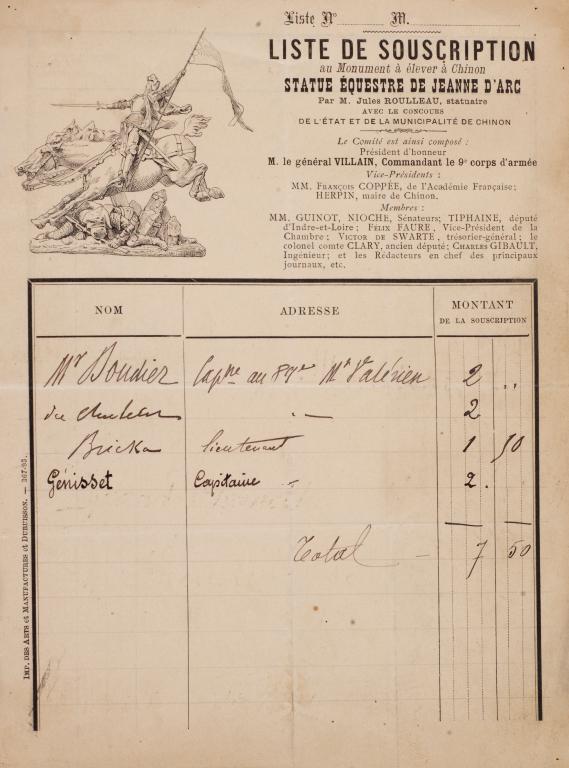 Liste Nº M.
LISTE DE SOUSCRIPTION
au Monument à élever à Chinon
STATUE ÉQUESTRE DE JEANNE D'ARC
Par M. Jules ROULLEAU, statuaire
AVEC LE CONCOURS
DE L'ÉTAT ET DE LA MUNICIPALITÉ DE CHINON
Le Comité est ainsi composé :
Président d'honneur
M. le général VILLAIN, Commandant le 9e corps d'armée
Vice-Présidents :
MM. FRANÇOIS COPPÉE, de l'Académie Française;
HERPIN, maire de Chinon.
Membres :
MM. GUINOT, NIOCHE, Sénateurs; TIPHAINE, député
d'Indre-et-Loire; FÉLIX FAURE, Vice-Président de la
Chambre; VICTOR DE SWARTE, trésorier-général; le
colonel comte CLARY, ancien député; CHARLES GIBAULT,
Ingénieur; et les Rédacteurs en chef des principaux
journaux, etc.
NOM ADRESSE MONTANT
DE LA SOUSCRIPTION
Mr Boudier Capne au Mt Valérien 2 "
2
Bricka lieutenant 1 50
Génisset Capitaine " 2.
Total — 7 50
IMP. DES ARTS ET MANUFACTURES ET DUBUISSON. — 367-93.